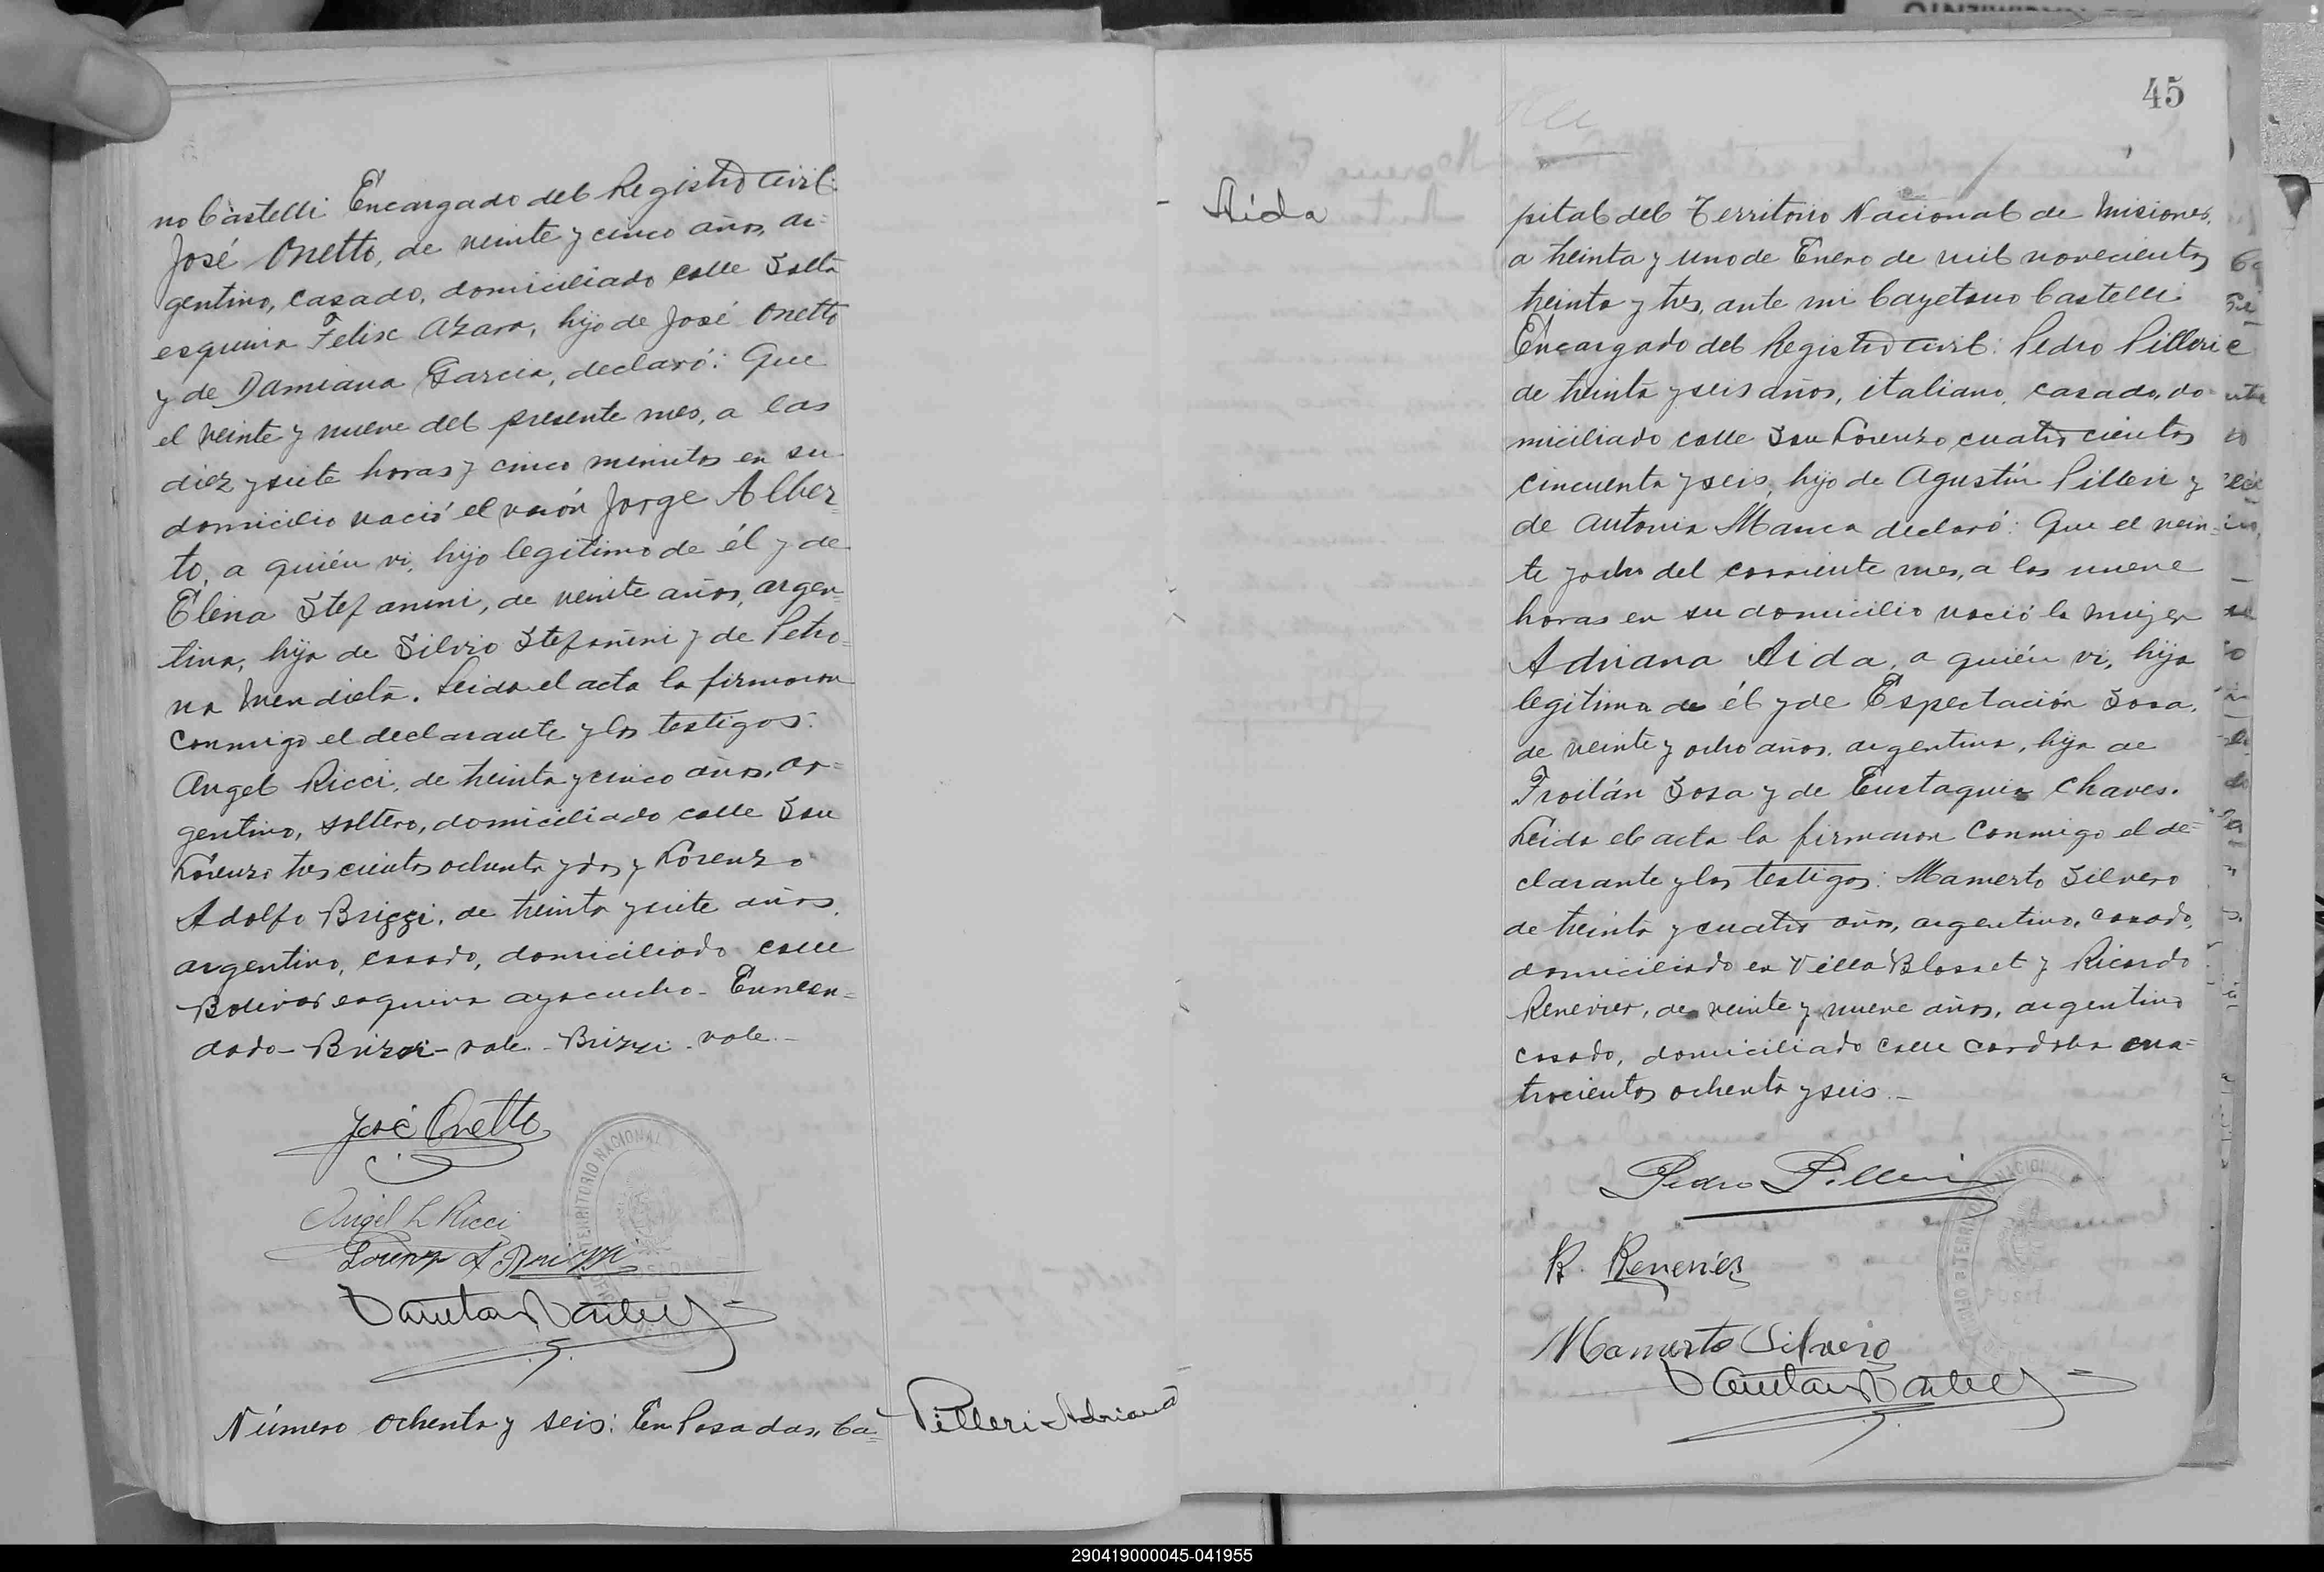 no Castelli Encargado del Registro Civil:
José Onetto, de veinte y cinco años, ar=
gentino, casado, domiciliado calle Salta
esquina Felix Azara, hijo de José Onetto
y de Damiana Garcia, declaró: Que
el veinte y nueve del presente mes, a las
diez y siete horas y cinco minutos en su
domicilio nació el varón Jorge Alber=
to, a quién vi, hijo legitimo de él y de
Elena Stefanini, de veinte años, argen=
tina, hija de Silvio Stefanini y de Petro=
na Mendieta. Leida el acta la firmaron
conmigo el declarante y los testigos:
Angel Ricci, de treinta y cinco años, ar=
gentino, soltero, domiciliado calle San
Lorenzo trescientos ochenta y dos y Lorenzo
Adolfo Briggi, de treinta y siete años,
argentino, casado, domiciliado calle
Bolivar esquina Ayacucho - Enmen=
dado - Brizzi - vale - Brizzi - vale -
José Onetto
Angel L Ricci
Lorenzo A Brizzi
TERRITORIO NACIONAL
POSADAS
Número ochenta y seis: En Posadas, Ca=
Pilleri Adriana
45
Aida
pital del Territorio Nacional de Misiones,
a treinta y uno de Enero de mil novecientos
treinta y tres, ante mi Cayetano Castelli
Encargado del Registro Civil: Pedro Pilleri
de treinta y seis años, italiano, casado, do-
miciliado calle San Lorenzo cuatro cientos
cincuenta y seis, hijo de Agustín Pilleri y
de Antonia Manca declaró: Que el vein-
te y ocho del corriente mes, a las nueve
horas en su domicilio nació la mujer
Adriana Aida, a quién vi, hija
legitima de él y de Espectación Sosa,
de veinte y ocho años, argentina, hija de
Froilán Sosa y de Eustaquia Chaves.
Leida el acta la firmaron conmigo el de=
clarante y los testigos: Mamerto Silvero
de treinta y cuatro años, argentino, casado,
domiciliado en Villa Blosset y Ricardo
Renevier, de veinte y nueve años, argentino
casado, domiciliado calle Cordoba cua=
trocientos ochenta y seis -
Pedro Pilleri
R. Renevier
Mamerto Silvero
TERRITORIO NACIONAL
290419000045-041955